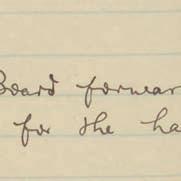 Board forwar
for the ha